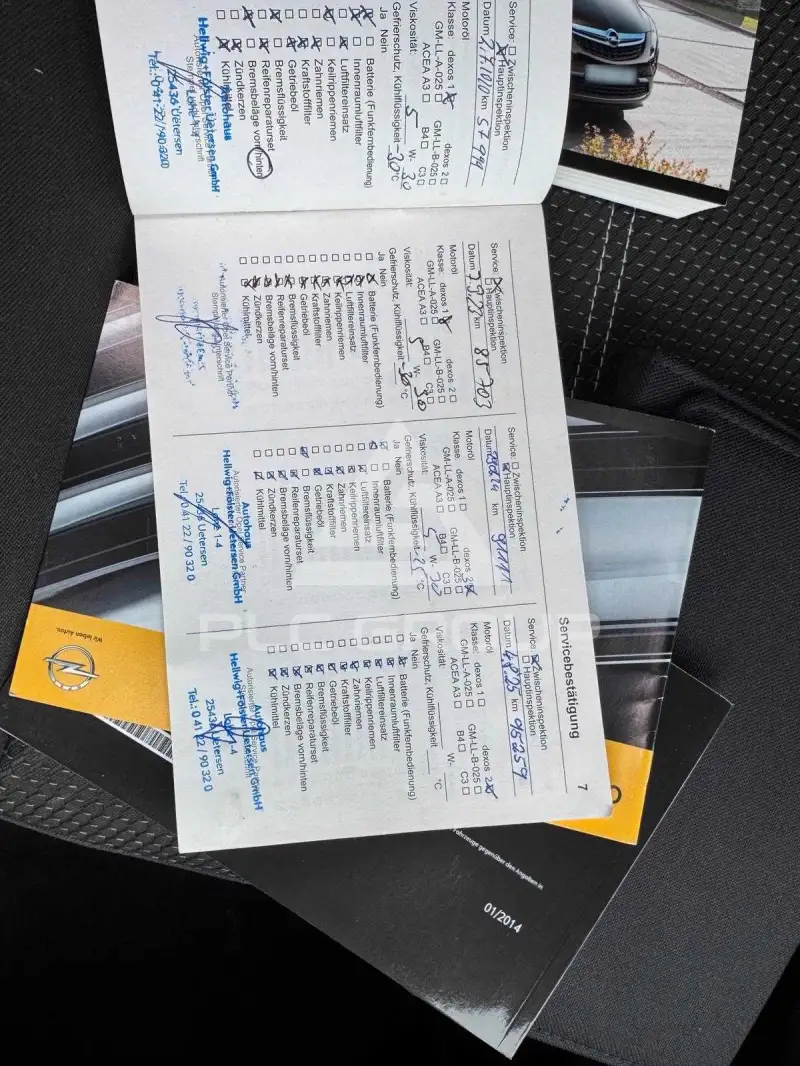 Service: ☐ Zwischeninspektion
☒ Hauptinspektion
Motoröl
Klasse: dexos 1 ☒ dexos 2 ☐
GM-LL-A-025 ☐ GM-LL-B-025 ☐
ACEA A3 ☐ B4 ☐ C3 ☐
Viskosität: 5 W- 30
Gefrierschutz, Kühlflüssigkeit -30 °C
Ja Nein
Batterie (Funkfernbedienung)
Innenraumluftfilter
Luftfiltereinsatz
Keilrippenriemen
Zahnriemen
Kraftstofffilter
Getriebeöl
Bremsflüssigkeit
Reifenreparaturset
Bremsbeläge vorn/hinten
Zündkerzen
Kühlmittel
Autohaus
Hellwig+Fölster Uetersen GmbH
25436 Uetersen
Tel.: 0 41 22 / 90 32 0
Service: ☒ Zwischeninspektion
☐ Hauptinspektion
km 85703
Motoröl
Klasse: dexos 1 ☒ dexos 2 ☐
GM-LL-A-025 ☐ GM-LL-B-025 ☐
ACEA A3 ☐ B4 ☐ C3 ☐
Viskosität: 5 W- 30
Gefrierschutz, Kühlflüssigkeit -30 °C
Ja Nein
Batterie (Funkfernbedienung)
Innenraumluftfilter
Luftfiltereinsatz
Keilrippenriemen
Zahnriemen
Kraftstofffilter
Getriebeöl
Bremsflüssigkeit
Reifenreparaturset
Bremsbeläge vorn/hinten
Zündkerzen
Kühlmittel
Service: ☐ Zwischeninspektion
☒ Hauptinspektion
Motoröl
Klasse: dexos 1 ☐ dexos 2 ☒
GM-LL-A-025 ☐ GM-LL-B-025 ☐
ACEA A3 ☐ B4 ☐ C3 ☐
Viskosität: 5 W- 30
Gefrierschutz, Kühlflüssigkeit -25 °C
Ja Nein
Batterie (Funkfernbedienung)
Innenraumluftfilter
Luftfiltereinsatz
Keilrippenriemen
Zahnriemen
Kraftstofffilter
Getriebeöl
Bremsflüssigkeit
Reifenreparaturset
Bremsbeläge vorn/hinten
Zündkerzen
Kühlmittel
Autohaus
Hellwig+Fölster Uetersen GmbH
1-4
Uetersen
Tel.: 0 41 22 / 90 32 0
Servicebestätigung
7
Service: ☒ Zwischeninspektion
☐ Hauptinspektion
km 95259
Motoröl
Klasse: dexos 1 ☐ dexos 2 ☒
GM-LL-A-025 ☐ GM-LL-B-025 ☐
ACEA A3 ☐ B4 ☐ C3 ☐
Viskosität: W-
Gefrierschutz, Kühlflüssigkeit °C
Ja Nein
Batterie (Funkfernbedienung)
Innenraumluftfilter
Luftfiltereinsatz
Keilrippenriemen
Zahnriemen
Kraftstofffilter
Getriebeöl
Bremsflüssigkeit
Reifenreparaturset
Bremsbeläge vorn/hinten
Zündkerzen
Kühlmittel
Autohaus
Hellwig+Fölster Uetersen GmbH
1-4
25436 Uetersen
Tel.: 0 41 22 / 90 32 0
Wir leben Autos.
Fahrzeuge gegenüber den Angaben in
01/2014
PLC GROUP